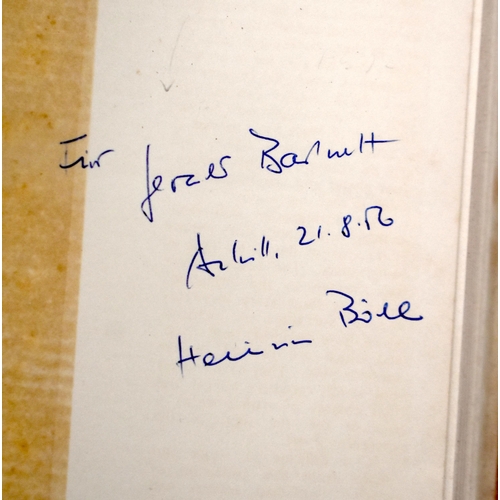 Für Gerald Barnett
Achill, 21.8.56
Heinrich Böll